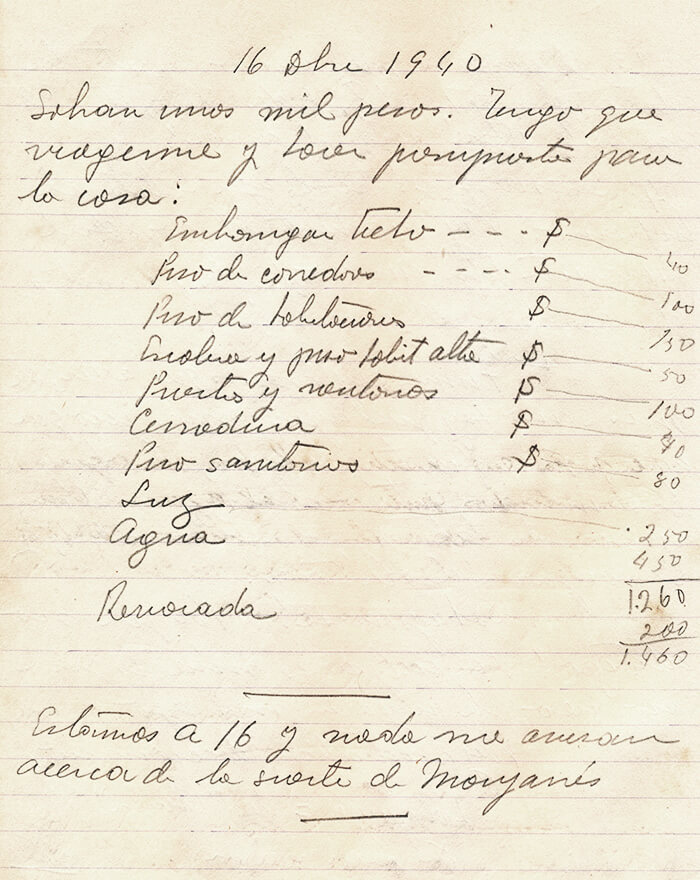 16 Dbre 1940
Sohan unos mil pesos. Tengo que
y hacer presupuesto para
la casa:
techo - - - - $ 40
Piso de corredores - - - - $ 100
Piso de habitaciones $ 150
Escalera y piso habit alta $ 50
Puertas y ventanas $ 100
Cerradura $ 40
Piso sanitarios $ 80
Luz 250
Agua 450
1.260
Revocada 200
1.460
Estamos a 16 y nada me avisan
acerca de la suerte de Monjanés